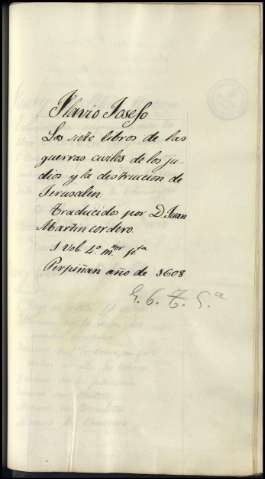 Flavio Josefo
Los siete libros de las
guerras civiles de los ju-
dios y la destruccion de
Jerusalen.
Traducidos por D. Juan
Martin cordero.
1 Vol. 4º m.or
Perpiñan año de 1608
E. 6. T. 5.a